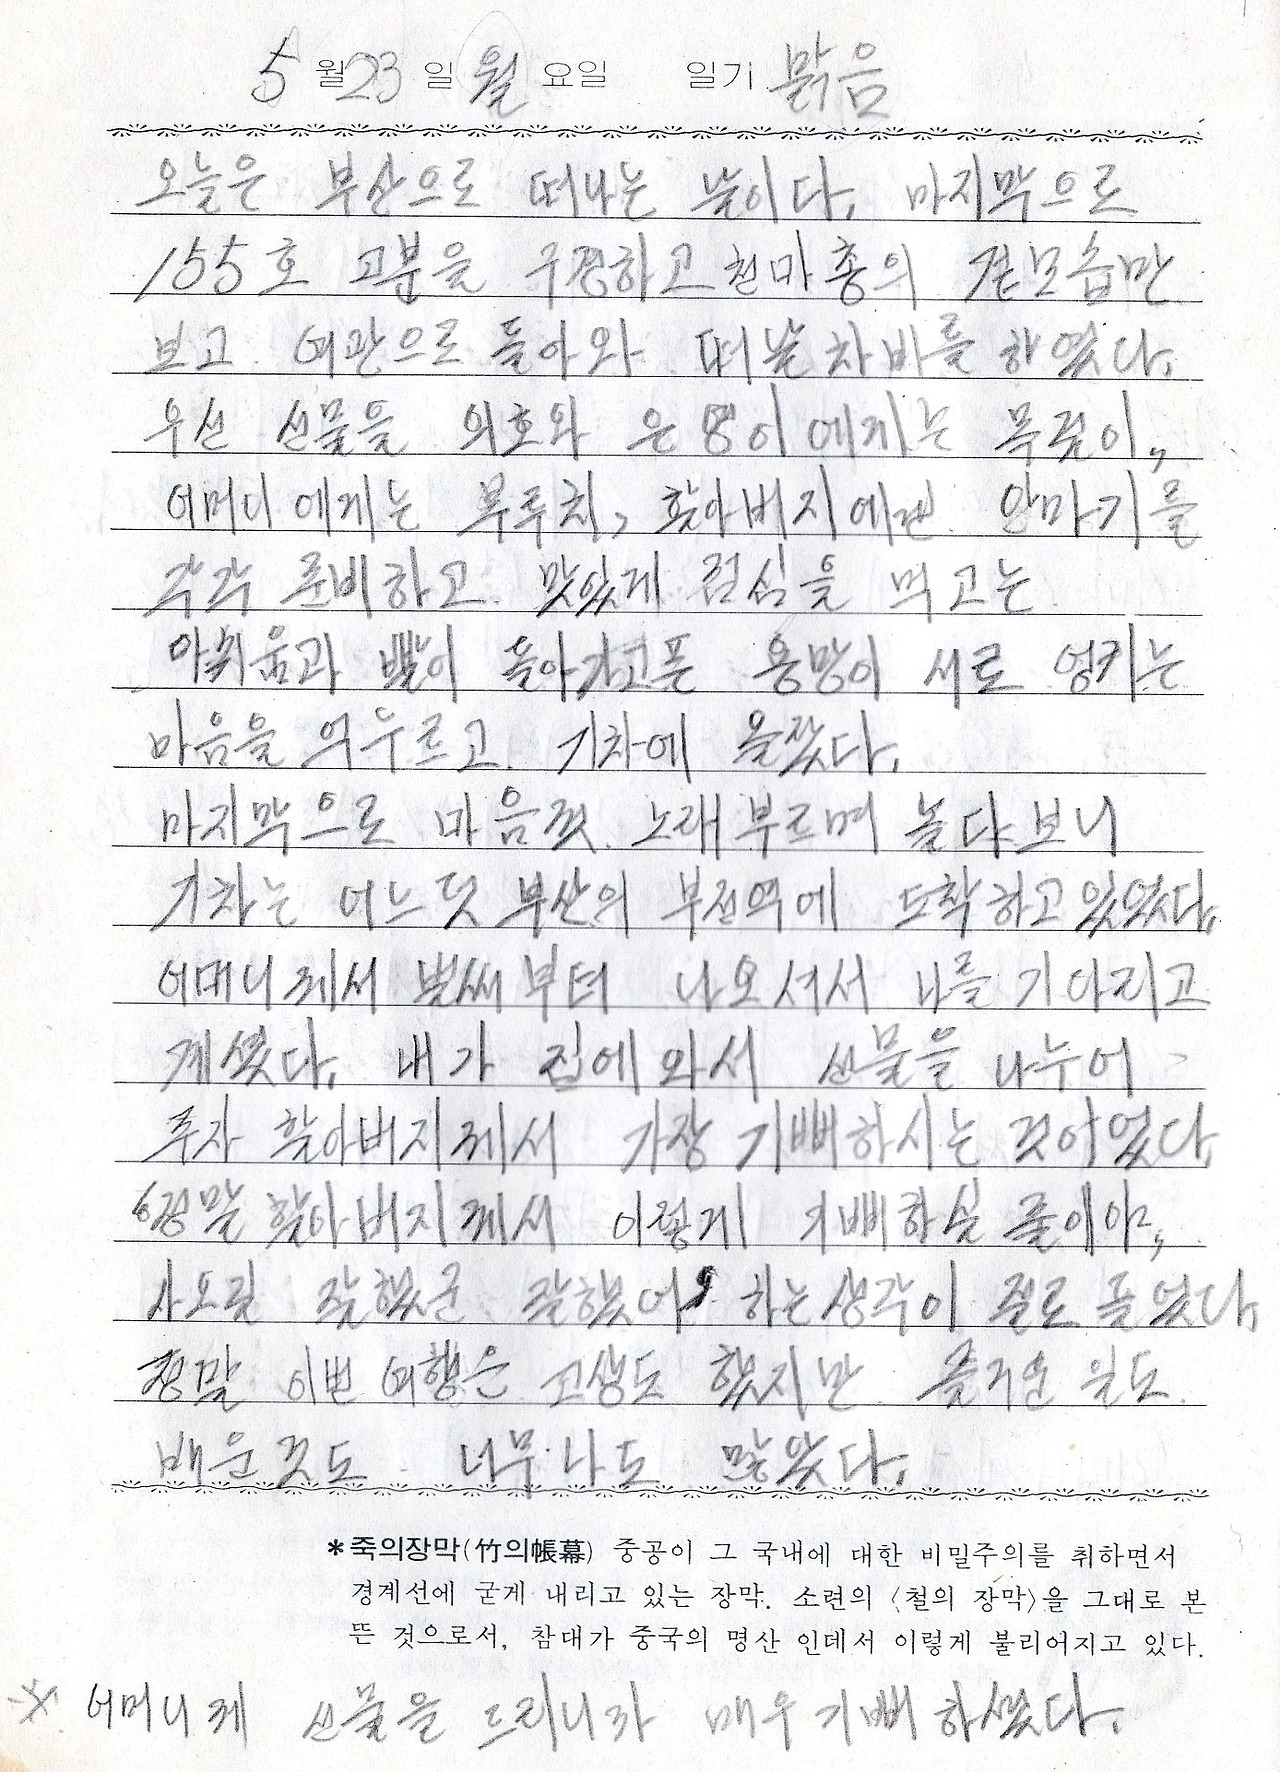 5월 23일 월요일 일기 맑음
오늘은 부산으로 떠나는 날이다. 마지막으로
155호 고분을 구경하고 천마총의 겉모습만
보고 여관으로 돌아와 떠날 차비를 하였다.
우선 선물을 의호와 은영이에게는 목걸이,
어머니에게는 부루치, 할아버지에겐 안마기를
각각 준비하고 맛있게 점심을 먹고는
아쉬움과 빨이 돌아가고픈 욕망이 서로 엉키는
마음을 억누르고 기차에 올랐다.
마지막으로 마음껏 노래부르며 놀다보니
기차는 어느덧 부산의 부전역에 도착하고 있었다.
어머니께서 벌써부터 나오셔서 나를 기다리고
계셨다. 내가 집에 와서 선물을 나누어
주자 할아버지께서 가장 기뻐하시는 것이었다.
"정말 할아버지께서 이렇게 기뻐하실 줄이야,
사오길 잘했군 잘했어" 하는 생각이 절로 들었다.
정말 이번 여행은 고생도 했지만 즐거운 일도
배운것도 너무나도 많았다.
*죽의장막(竹의帳幕) 중공이 그 국내에 대한 비밀주의를 취하면서
경계선에 굳게 내리고 있는 장막. 소련의 〈철의 장막〉을 그대로 본
뜬 것으로서, 참대가 중국의 명산 인데서 이렇게 불리어지고 있다.
※ 어머니께 선물을 드리니까 매우 기뻐하셨다.